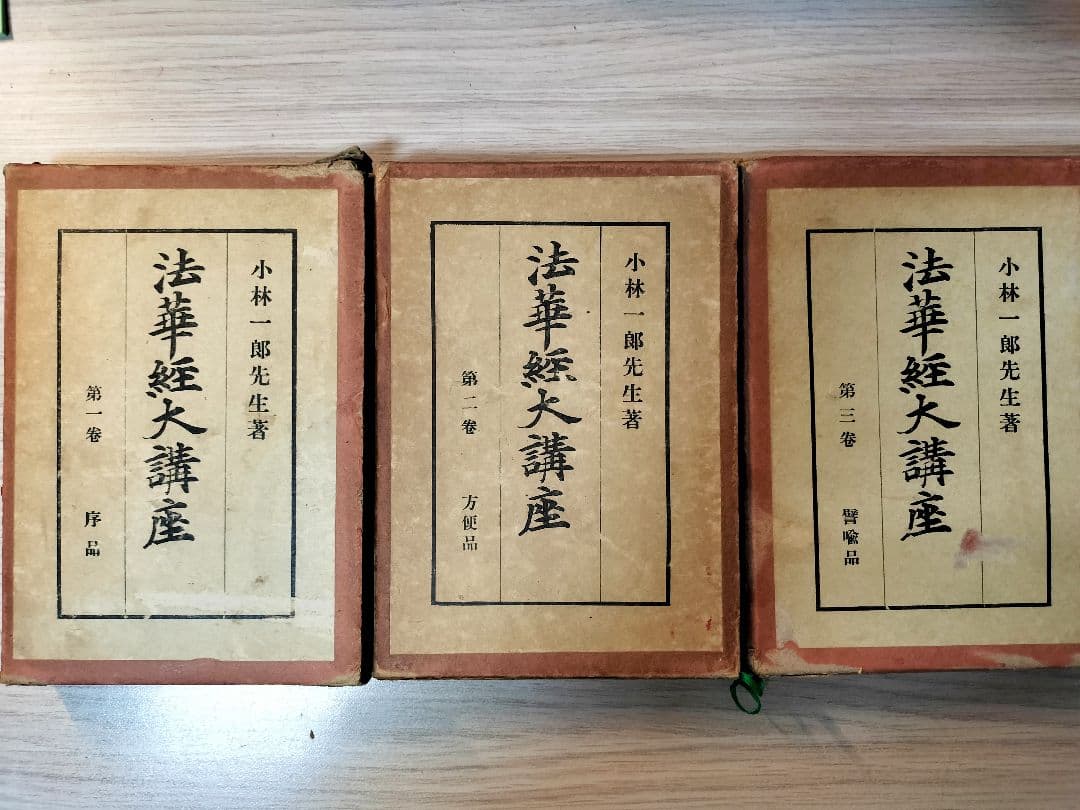 小林一郎先生著
法華經大講座
第一卷 序品
小林一郎先生著
法華經大講座
第二卷 方便品
小林一郎先生著
法華經大講座
第三卷 譬喩品